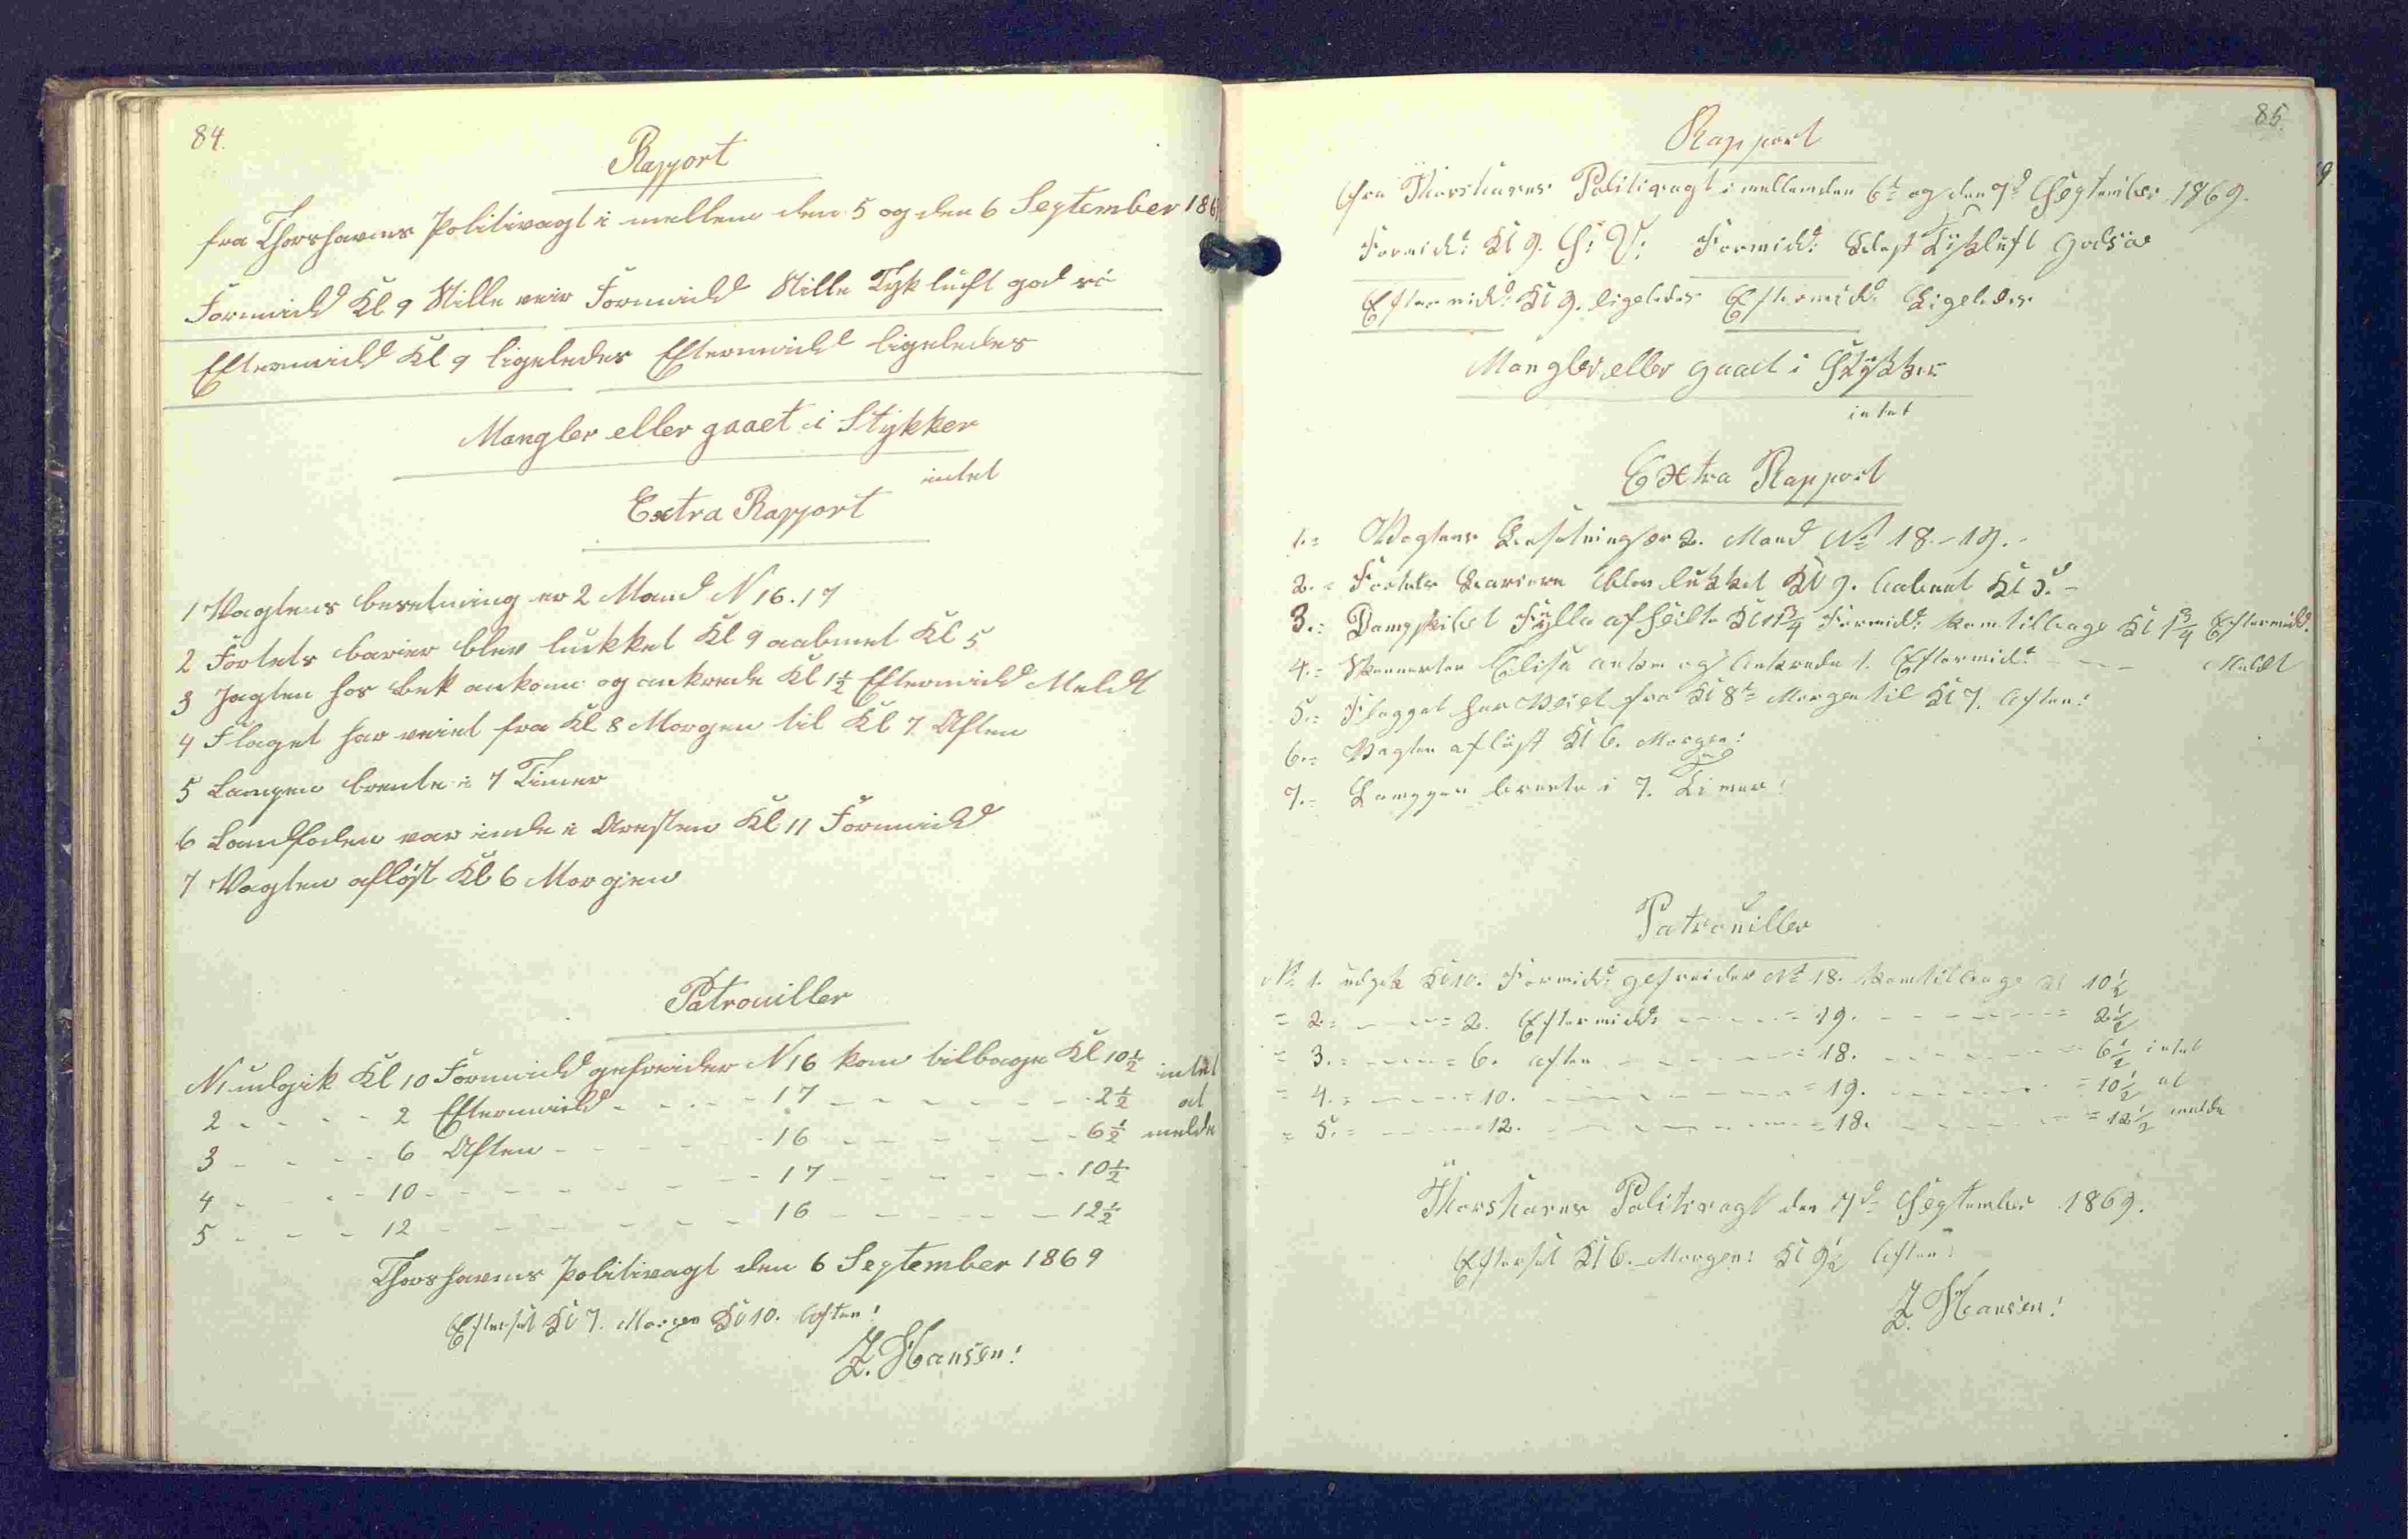 84.
Rapport
fra Thorshavns Politivagt i mellem den 5 og den 6 September 186
Formidd Kl 9 Stille veir Formidd Stille Tyk luft god sö
Eftermidd Kl 9 ligeledes Eftermidd ligeledes
Mangler eller gaaet i Stykker
intet
Extra Rapport
1 Vagtens besetning er 2 Mand N 16.17
2 Fortets barier blev lukket Kl 9 aabnet Kl 5
3 Jagten hos bek ankom og ankrede Kl 1½ Eftermidd Meldt
4 Flaget har veiet fra Kl 8 Morgen til Kl 7 Aften
5 Lampen brente i 7 Timer
6 Landfoden var inde i Aresten Kl 11 Formidd
7 Vagten aflöst Kl 6 Morgen
Patrouiller
N 1 udgik Kl 10 Formidd gefreider N 16 kom tilbage Kl 10½ intet
2 - - - 2 Eftermidd - - - - 17 - - - - - - 2½ at
3 - - - 6 Aften - - - - 16 - - - - - - 6½ melde
4 - - - 10 - - - - - - - - 17 - - - - - 10½
5 - - - 12 - - - - - - - - 16 - - - - - 12½
Thorshavns Politivagt den 6 September 1869
Efterset Kl 7. Morgen Kl 10. Aften!
Z. Hansen!
85.
Rapport
fra Thorshavns Politivagt i mellem den 6t og den 7d September 1869.
Formidd: Kl 9. S: V: Formidd: Tÿkluft god sö
Eftermidd: Kl 9. ligeledes Eftermidd: Ligeledes
Mangler eller gaaet i Stÿkker
intet
Extra Rapport
1.= Vagtens Besetning er 2. Mand No 18.-19.-
2.= Fortets Bariere blev lukket Kl 9. aabnet Kl 5.-
3.= Dampskibet Fÿlla afseilte Kl Formidd: kom tilbage Kl 1¾ Eftermidd.
4.= Skonnerten Elisa ankom og ankrede 1. Eftermidd - - - Meldt
5.= Flagget har Veiet fra Kl 8t Morgen til Kl 7. Aften:
6.= Vagten aflöst Kl 6. Morgen:
7.= Lamppen brente i 7. Timer!
Patrouiller
No 1. udgik Kl 10. Formidd: gefreider No 18. kom tilbage Kl 10½
= 2.= - - - = 2. Eftermidd: - - - = 19. - - - - = 2½
= 3.= - - - = 6. aften - - - - = 18. - - - - = 6½ intet
= 4.= - - - = 10. - - - - - - = 19. - - - - = 10½ at
= 5.= - - - = 12. - - - - - - = 18. - - - - = 12½ melde
Thorshavns Politivagt den 7d September 1869.
Efterset Kl 6. Morgen: Kl 9½ Aften:
Z. Hansen!